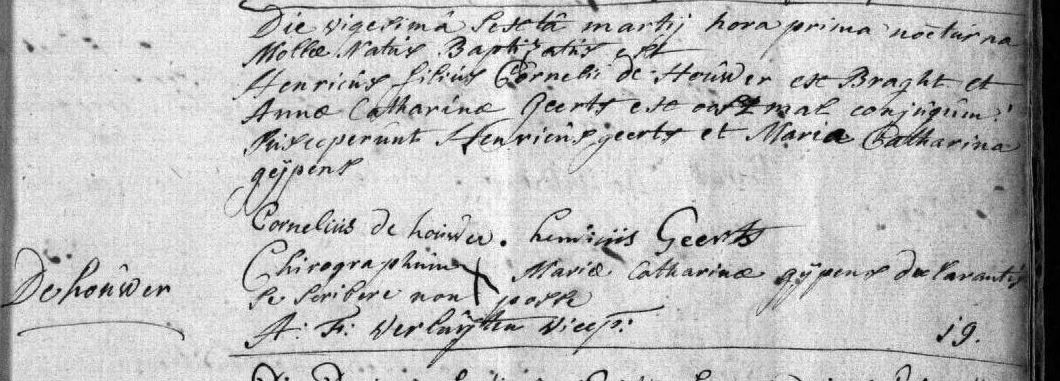 Die vigesimâ Sextâ martij hora prima nocturna
Mollæ Natus Baptizatus est
Henricus filius Cornelii de Houwer ex Braght et
Annæ Catharinæ Geerts ex oostmal conjugum:
Susceperunt Henricus geerts et Maria Catharina
gÿpens
Cornelius de houwer. henricus Geerts
Chirographum X Mariæ Catharinæ gÿpens declarantis
De houwer
se scribere non posse
A: F: Verluÿten vicep:
19.